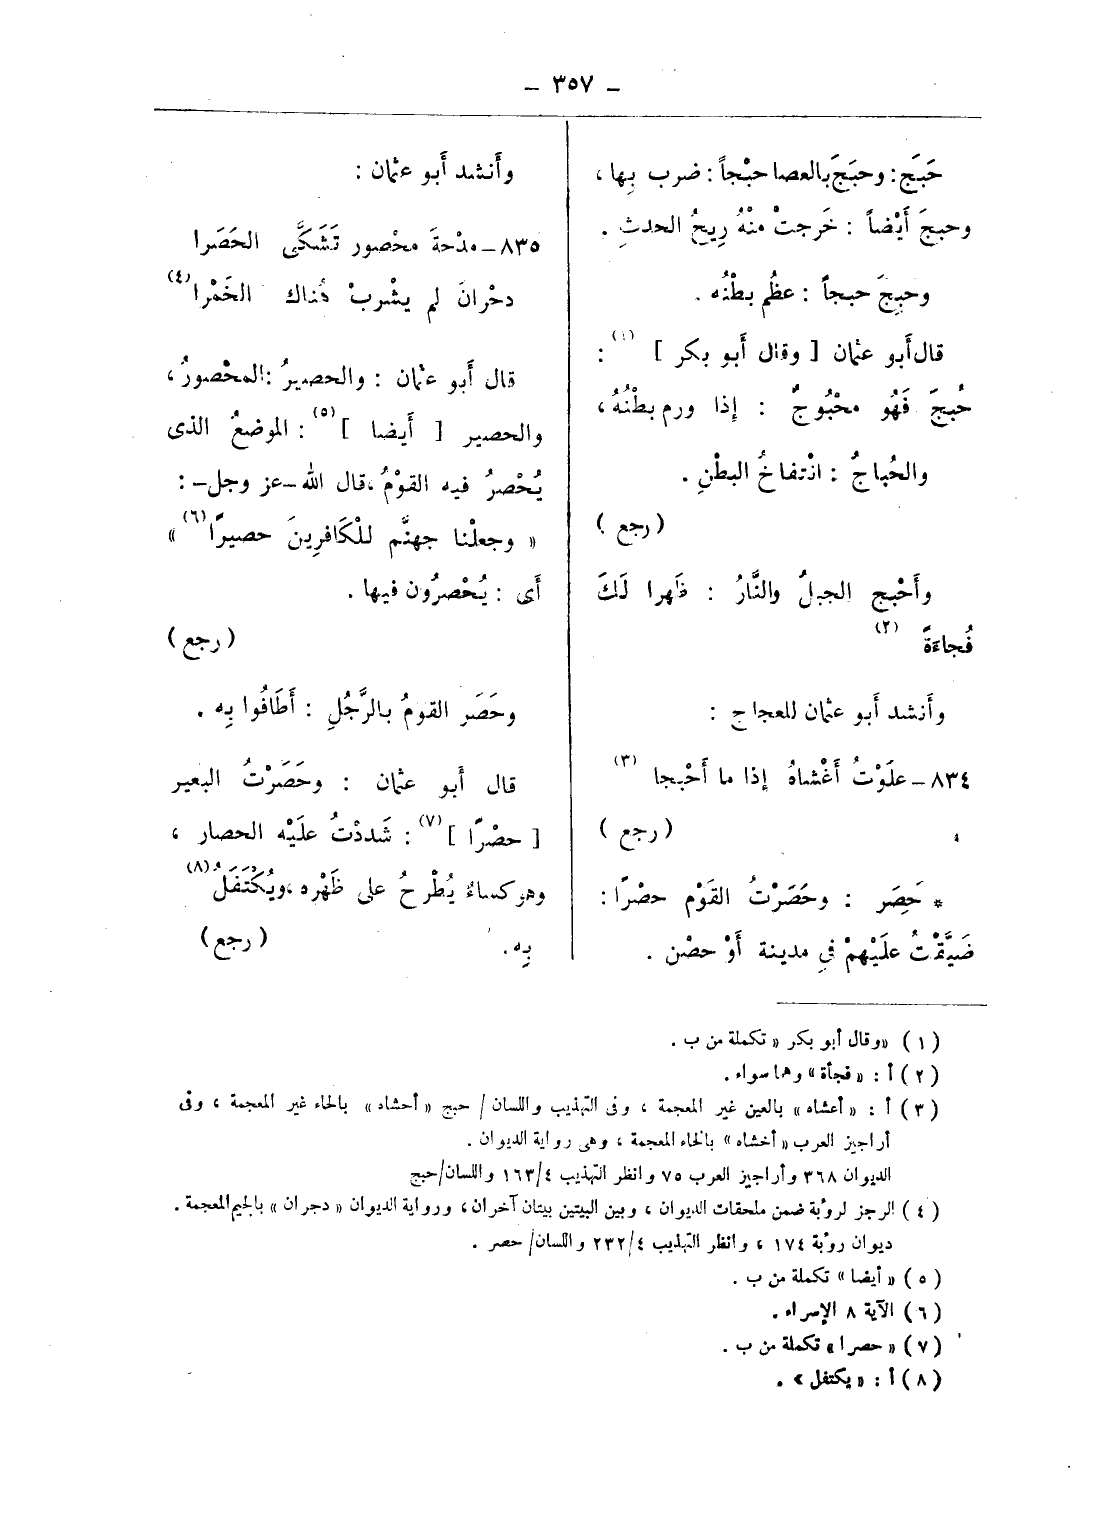 – ٣٥٧ –
حَبَج: وحبَجَ بالعصا حبْجاً: ضرب بِها،
وحبجَ أَيْضاً : خَرجتْ منْهُ رِيحُ الحدثِ .
وحبِجَ حبجاً : عظُم بطْنُه .
قال أَبو عثمان [ وقال أَبو بكر ] (١) :
حُبجَ فَهُو محْبُوجٌ : إِذا ورم بطْنُهُ،
والحُباجُ : انْتفاخُ البطْنِ .
( رجع )
وأَحْبج الجبلُ والنَّارُ : ظَهرا لَكَ
فُجاءَةً (٢)
وأَنشد أَبو عثمان للعجاج :
٨٣٤ – علَوْتُ أَغْشاهُ إِذا ما أَحْبجا (٣)
( رجع )
* حَصِر : وحَصَرْتُ القَوْم حصْرًا :
ضَيَّقْتُ علَيْهِمْ فِى مدينة أَوْ حصْن .
وأَنشد أَبو عثمان :
٨٣٥ – مدْحةَ محْصور تَشَكَّى الحَصَرا
دحْرانَ لم يشْربْ هُناك الخَمْرا (٤)
قال أَبو عثمان : والحصيرُ : المحْصورُ،
والحصير [ أَيضا ] (٥) : الموضعُ الذى
يُحْصرُ فيه القوْمُ، قال الله – عز وجل – :
« وجعلْنا جهنَّم للْكَافرِينَ حصيرًا (٦) »
أَى : يُحْصرُون فيها .
( رجع )
وحَصَر القومُ بالرَّجُلِ : أَطَافُوا بِه .
قال أَبو عثمان : وحَصَرْتُ البعير
[ حصْرًا ] (٧) : شَددْتُ علَيْه الحصار ،
وهو كساءٌ يُطْرحُ على ظَهْره، ويُكْتَفَلُ (٨)
بِه .
( رجع )
(١) «وقال أبو بكر » تكملة من ب .
(٢) أ : « فجأة » وهما سواء .
(٣) أ : « أعشاه » بالعين غير المعجمة ، وفى التهذيب واللسان / حبج « أحشاه » بالحاء غير المعجمة ، وفى
أراجيز العرب « أخشاه » بالخاء المعجمة ، وهى رواية الديوان .
الديوان ٣٦٨ وأراجيز العرب ٧٥ وانظر التهذيب ١٦٣/٤ واللسان/حبج
(٤) الرجز لرؤبة ضمن ملحقات الديوان ، وبين البيتين بيتان آخران ، ورواية الديوان « دجران » بالجيم المعجمة .
ديوان رؤبة ١٧٤ ، وانظر التهذيب ٢٣٢/٤ واللسان/ حصر .
(٥) « أيضا » تكملة من ب .
(٦) الآية ٨ الإسراء .
(٧) « حصرا » تكملة من ب .
(٨) أ : « يكتفل » .